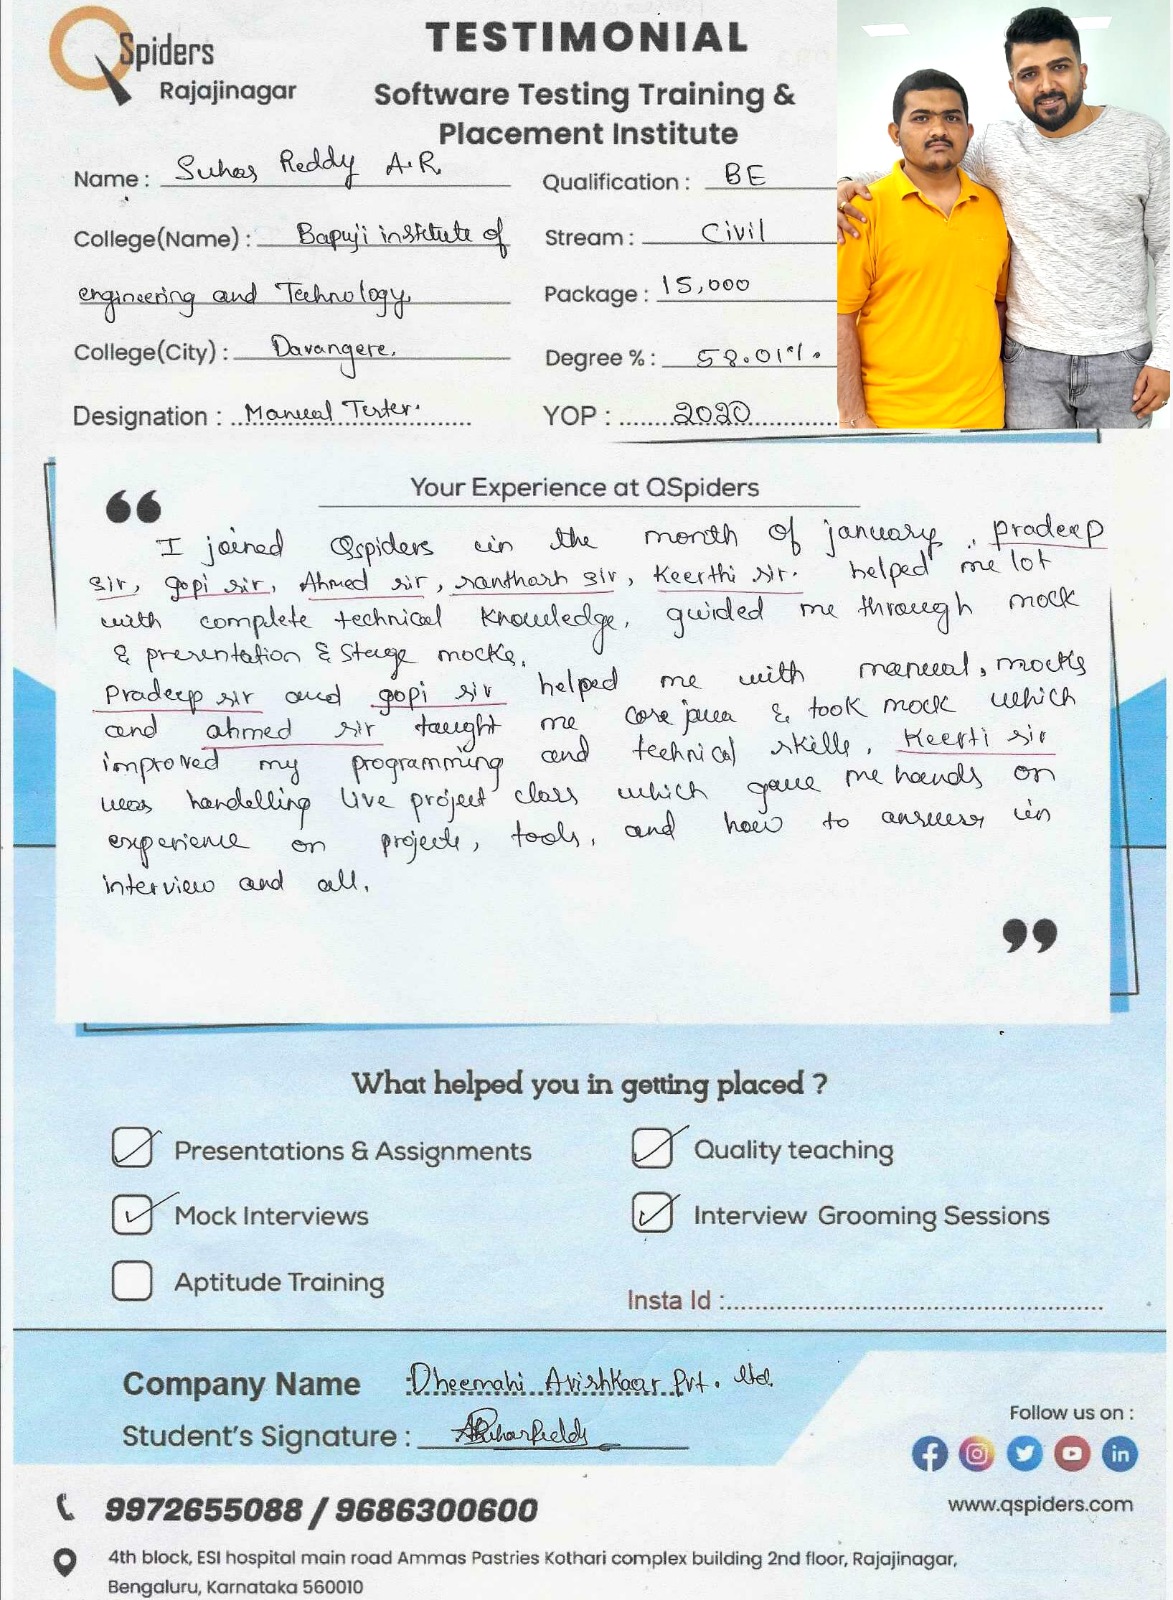 QSpiders
Rajajinagar
TESTIMONIAL
Software Testing Training &
Placement Institute
Name : Suhas Reddy A.R.
Qualification : BE
College(Name) : Bapuji institute of
Stream : Civil
engineering and Technology,
Package : 15,000
College(City) : Davangere.
Degree % : 58.01%.
Designation : Manual Tester.
YOP : 2020
Your Experience at QSpiders
I joined Qspiders in the month of january, pradeep
sir, gopi sir, Ahmed sir, santhosh sir, Keerthi sir. helped me lot
with complete technical knowledge, guided me through mock
& presentation & stage mocks.
Pradeep sir and gopi sir helped me with manual, mocks
and ahmed sir taught me core java & took mock which
improved my programming and technical skills, Keerti sir
was handelling live project class which gave me hands on
experience on projects, tools, and how to answer in
interview and all.
What helped you in getting placed ?
Presentations & Assignments
Quality teaching
Mock Interviews
Interview Grooming Sessions
Aptitude Training
Insta Id :
Company Name Dheemahi Avishkaar Pvt. ltd.
Student's Signature :
Follow us on :
9972655088 / 9686300600
www.qspiders.com
4th block, ESI hospital main road Ammas Pastries Kothari complex building 2nd floor, Rajajinagar,
Bengaluru, Karnataka 560010